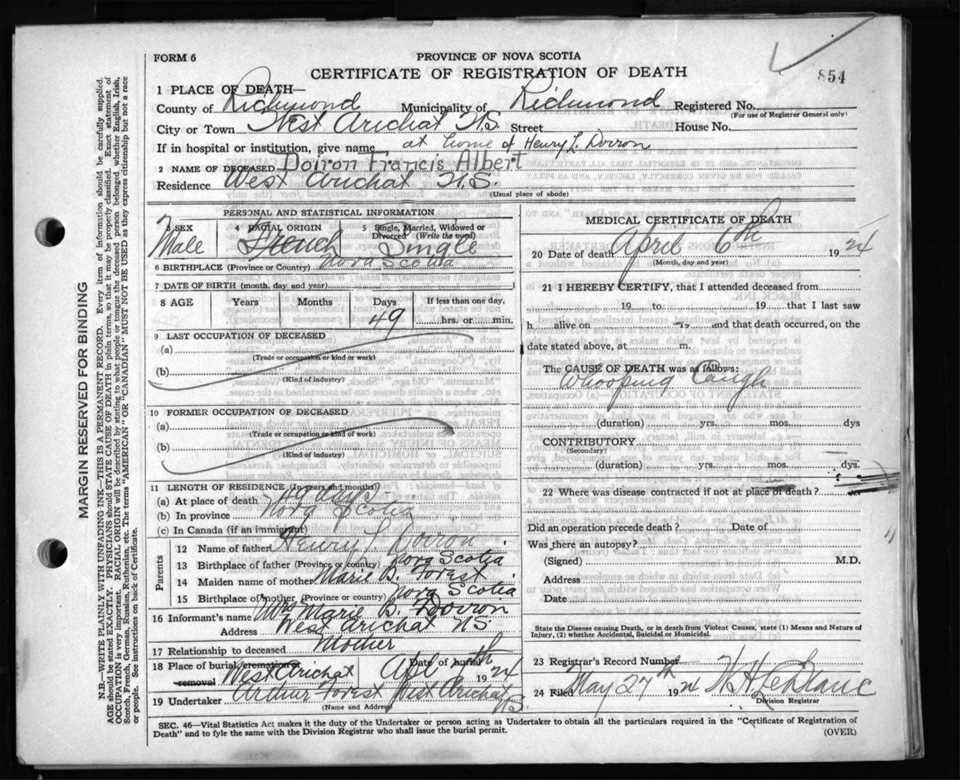 FORM 6
PROVINCE OF NOVA SCOTIA
CERTIFICATE OF REGISTRATION OF DEATH
854
1 PLACE OF DEATH—
County of Richmond Municipality of Richmond Registered No.
(For use of Registrar General only)
City or Town West Arichat N.S. Street House No.
If in hospital or institution, give name at home of Henry L. Doiron
2 NAME OF DECEASED Doiron Francis Albert
Residence West Arichat N.S.
(Usual place of abode)
PERSONAL AND STATISTICAL INFORMATION
3 SEX 4 RACIAL ORIGIN 5 Single, Married, Widowed or Divorced (Write the word)
Male French Single
6 BIRTHPLACE (Province or Country) Nova Scotia
7 DATE OF BIRTH (month, day and year)
8 AGE Years Months Days If less than one day,
49 hrs. or min.
9 LAST OCCUPATION OF DECEASED
(a)
(Trade or occupation or kind or work)
(b)
(Kind of industry)
10 FORMER OCCUPATION OF DECEASED
(a)
(Trade or occupation or kind or work)
(b)
(Kind of industry)
11 LENGTH OF RESIDENCE (In years and months)
(a) At place of death 49 days
(b) In province Nova Scotia
(c) In Canada (if an immigrant)
Parents
12 Name of father Henry L. Doiron
13 Birthplace of father (Province or country) Nova Scotia
14 Maiden name of mother Marie B. Forest
15 Birthplace of mother (Province or country) Nova Scotia
16 Informant's name Mrs Marie B. Doiron
Address West Arichat N.S.
17 Relationship to deceased Mother
18 Place of burial, cremation or removal West Arichat Date of burial Apl 8th 1924
19 Undertaker Arthur Forest West Arichat N.S.
(Name and Address)
MEDICAL CERTIFICATE OF DEATH
20 Date of death April 6th 1924
(Month, day and year)
21 I HEREBY CERTIFY, that I attended deceased from
19 to 19 that I last saw
h alive on 19 and that death occurred, on the
date stated above, at m.
The CAUSE OF DEATH was as follows:
Whooping Cough
(duration) yrs. mos. dys
CONTRIBUTORY
(Secondary)
(duration) yrs. mos. dys.
22 Where was disease contracted if not at place of death?
Did an operation precede death? Date of
Was there an autopsy?
(Signed) M.D.
Address
Date
State the Disease causing Death, or in death from Violent Causes, state (1) Means and Nature of Injury, (2) whether Accidental, Suicidal or Homicidal.
23 Registrar's Record Number
24 Filed May 27th 1924 W. H. LeBlanc
Division Registrar
SEC. 46—Vital Statistics Act makes it the duty of the Undertaker or person acting as Undertaker to obtain all the particulars required in the "Certificate of Registration of
Death" and to fyle the same with the Division Registrar who shall issue the burial permit.
(OVER)
MARGIN RESERVED FOR BINDING
N.B.—WRITE PLAINLY WITH UNFADING INK—THIS IS A PERMANENT RECORD. Every item of information should be carefully supplied.
AGE should be stated EXACTLY. PHYSICIANS should STATE CAUSE OF DEATH in plain terms, so that it may be properly classified. Exact statement of
OCCUPATION is very important. RACIAL ORIGIN will be described by stating to what people or tongue the deceased person belonged, whether English, Irish,
Scotch, French, German, Russian, Ruthenian, etc. The terms "AMERICAN" OR "CANADIAN" MUST NOT BE USED as they express citizenship but not a race
or people. See instructions on back of Certificate.